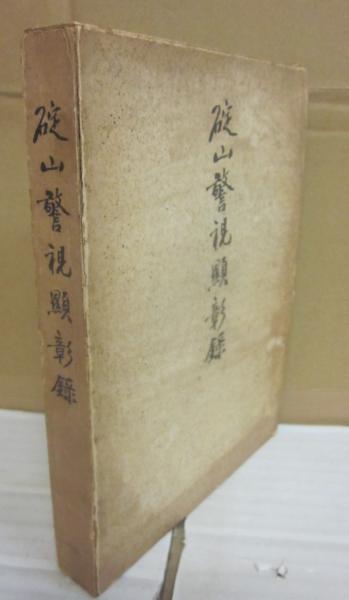 碇山警視顯彰録
碇山警視顯彰録